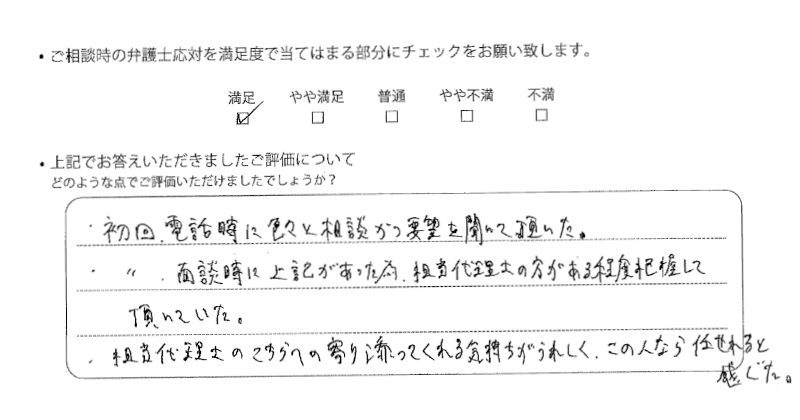 ・ご相談時の弁護士応対を満足度で当てはまる部分にチェックをお願い致します。
満足 やや満足 普通 やや不満 不満
・上記でお答えいただきましたご評価について
どのような点でご評価いただけましたでしょうか？
・初回、電話時に色々と相談かつ要望を聞いて頂いた。
・ 〃 、面談時に上記があった為、担当代理士の方がある程度把握して
頂いていた。
・担当代理士のこちらへの寄り添ってくれる気持ちがうれしく、この人なら任せれると
感じた。